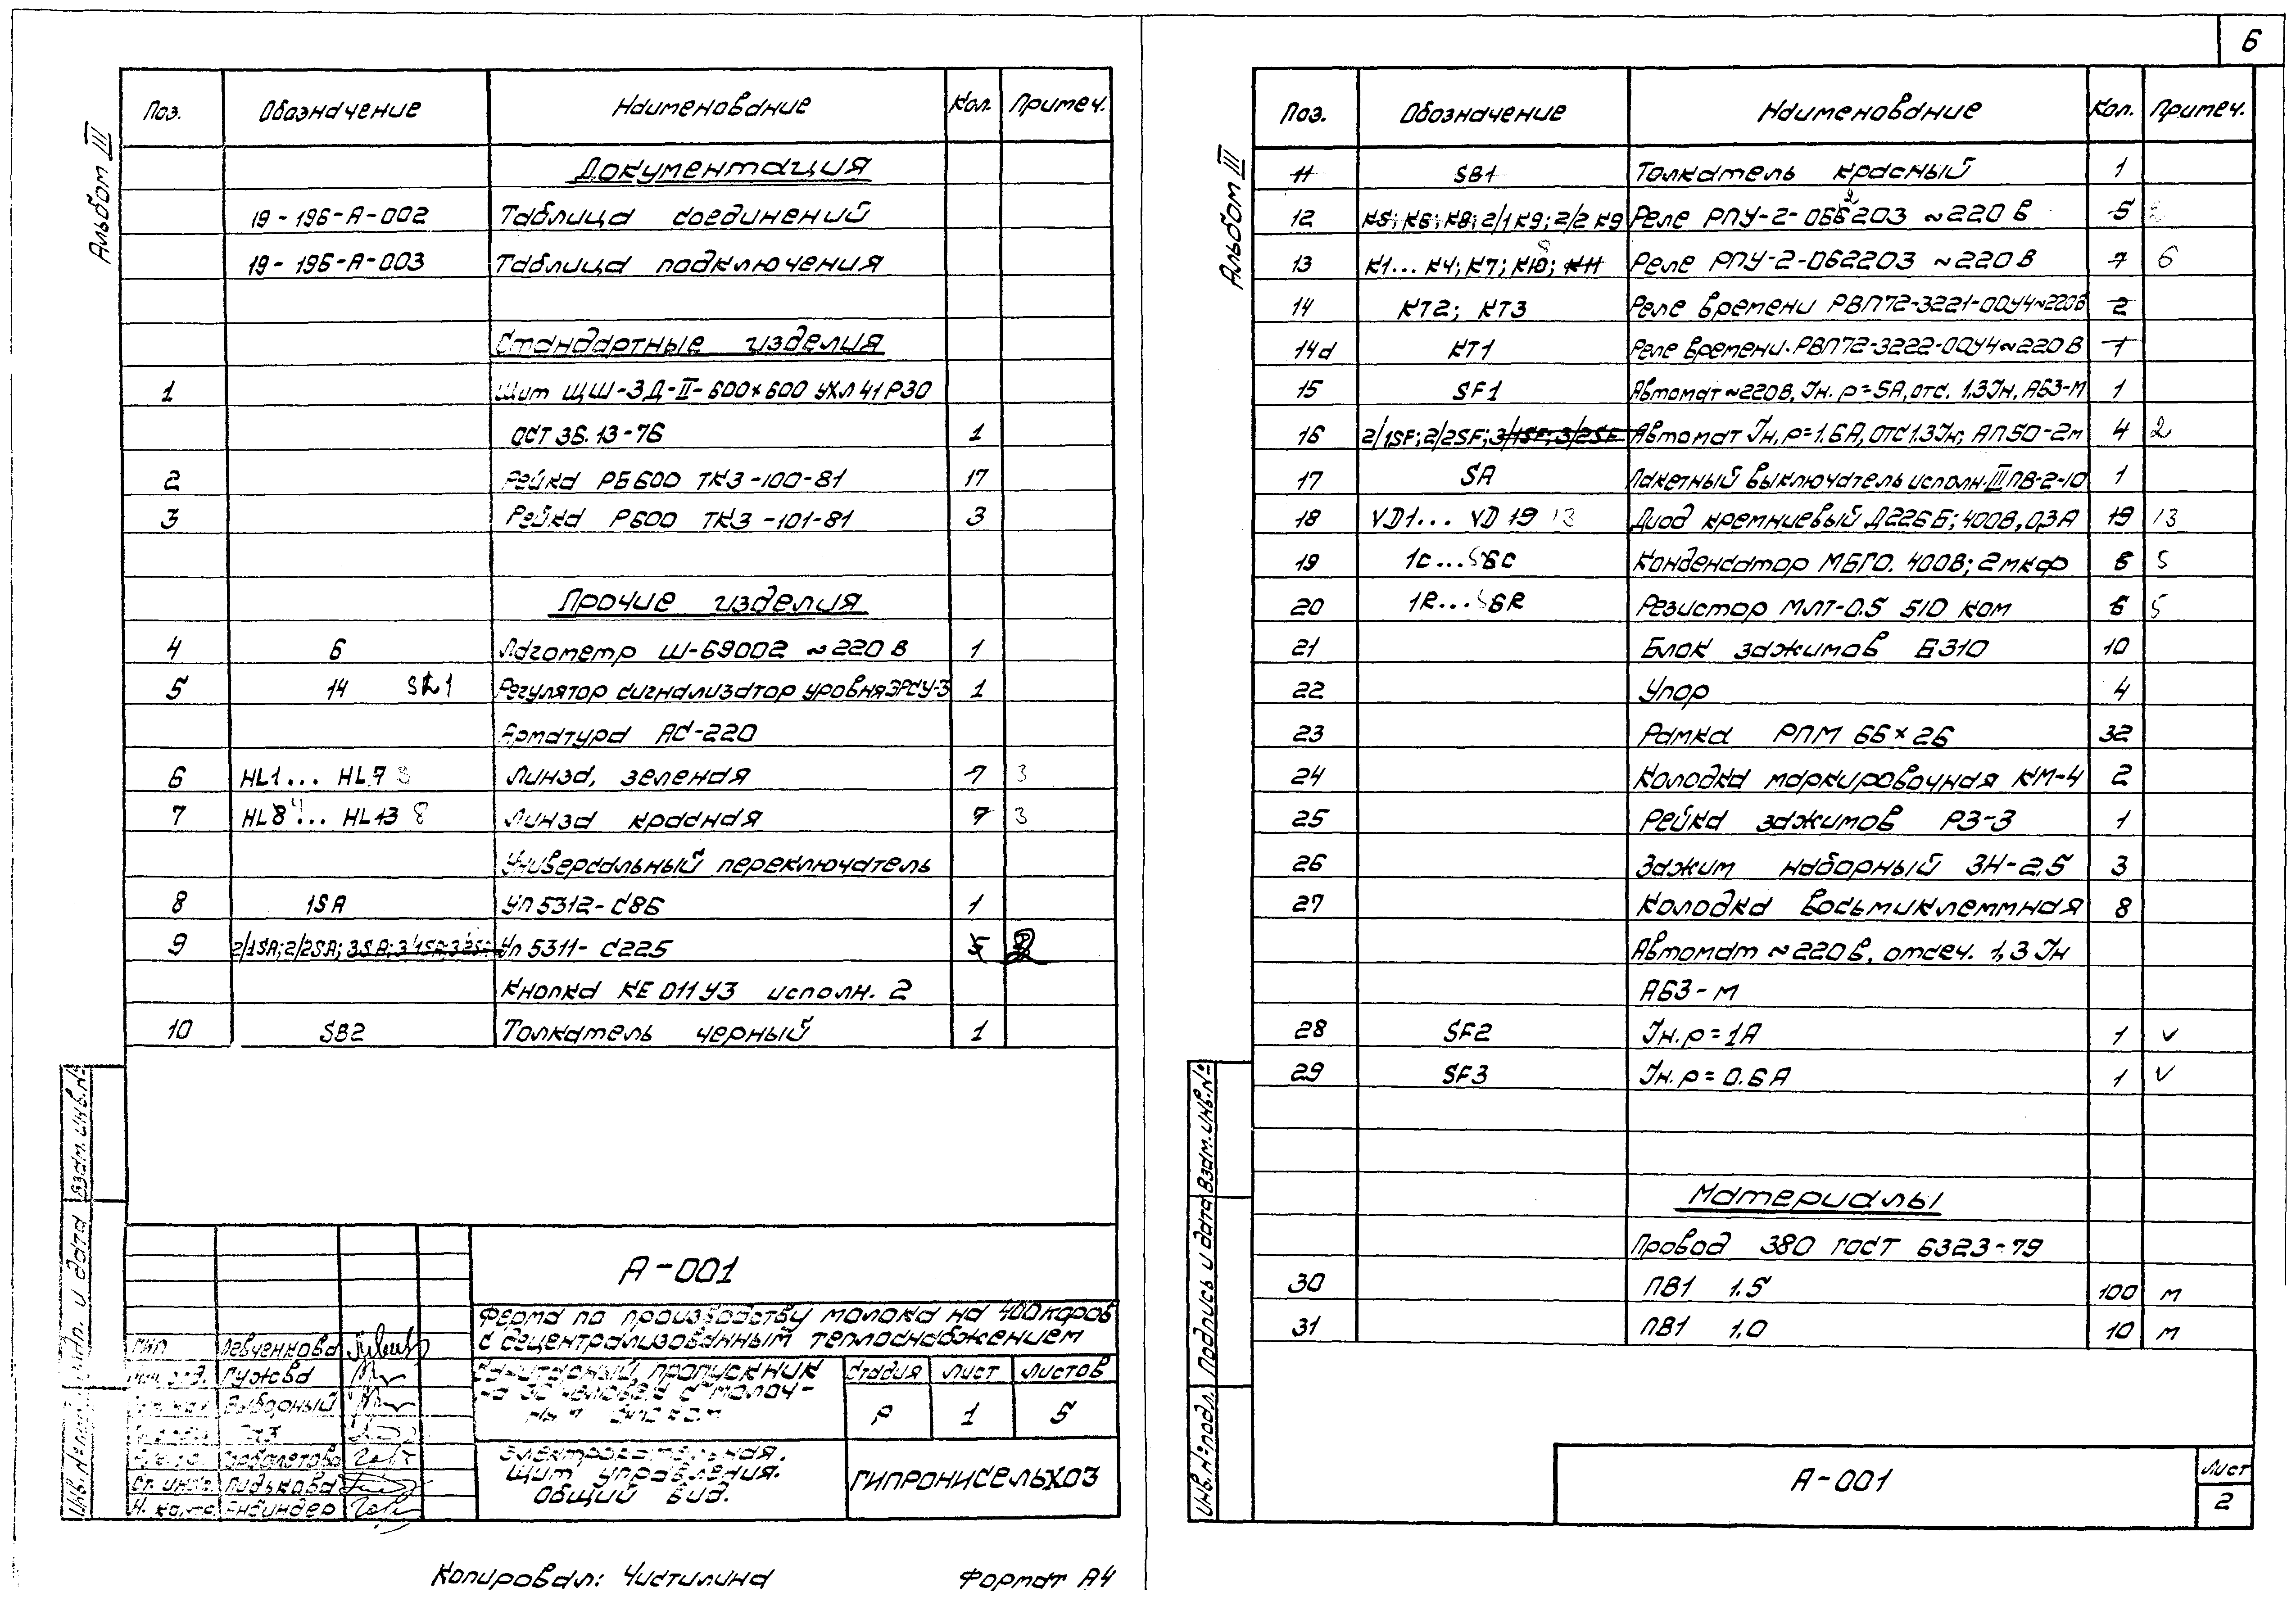 6
Альбом III
Поз. Обозначение Наименование Кол. Примеч.
Документация
19-196-А-002 Таблица соединений
19-196-А-003 Таблица подключения
Стандартные изделия
1 Щит ЩШ-3Д-II-600×600 УХЛ41Р30
ОСТ 36.13-76 1
2 Рейка РБ600 ТК3-100-81 17
3 Рейка Р600 ТК3-101-81 3
Прочие изделия
4 6 Логометр Ш-69002 ~220В 1
5 14 SL1 Регулятор сигнализатор уровня ЭРСУ-3 1
Арматура АС-220
6 HL1... HL7 3 Линза, зеленая 7 3
7 HL8 4... HL13 8 Линза красная 7 3
Универсальный переключатель
8 1SA УП5312-С86 1
9 2/1SA; 2/2SA; 3SA; 3/1SA; 3/2SA УП5311-С225 5 2
Кнопка КЕ011У3 исполн. 2
10 SB2 Толкатель черный 1
Взам. инв. №
Подп. и дата
Инв. № подл.
А-001
Ферма по производству молока на 400 коров
с децентрализованным теплоснабжением
Санитарный пропускник
на 30 человек с молоч-
ным блоком
Стадия Лист Листов
Р 1 5
Электрокотельная.
Щит управления.
Общий вид.
ГИПРОНИСЕЛЬХОЗ
ГИП Левченкова
Гужова
Выборный
Ст. инж. Гидькова
Н. контр.
Копировал: Чистилина Формат А4
Альбом III
Поз. Обозначение Наименование Кол. Примеч.
11 SB1 Толкатель красный 1
12 К5; К6; К8; 2/1К9; 2/2К9 Реле РПУ-2-066203 2 ~220В 5 2
13 К1... К4; К7; К10; К11 Реле РПУ-2-062203 ~220В 7 6
14 КТ2; КТ3 Реле времени РВП72-3221-00У4~220В 2
14а КТ1 Реле времени РВП72-3222-00У4~220В 1
15 SF1 Автомат ~220В, Iн.р=5А, отс. 1,3Iн, А63-М 1
16 2/1SF; 2/2SF; 3/1SF; 3/2SF Автомат Iн.р=1.6А, отс 1.3Iн; АП50-2м 4 2
17 SA Пакетный выключатель исполн. III ПВ-2-10 1
18 VD1... VD19 13 Диод кремниевый Д226Б; 400В, 0,3А 19 13
19 1С...56С Конденсатор МБГО. 400В; 2мкф 6 5
20 1R...56R Резистор МЛТ-0.5 510 ком 6 5
21 Блок зажимов Б310 10
22 Упор 4
23 Рамка РПМ 66×26 32
24 Колодка маркировочная КМ-4 2
25 Рейка зажимов РЗ-3 1
26 Зажим наборный ЗН-2,5 3
27 Колодка восьмиклеммная 8
Автомат ~220В, отсеч. 1,3Iн
А63-М
28 SF2 Iн.р=1А 1 v
29 SF3 Iн.р=0.6А 1 v
Материалы
Провод 380 ГОСТ 6323-79
30 ПВ1 1.5 100 м
31 ПВ1 1,0 10 м
Взам. инв. №
Подпись и дата
Инв. № подл.
А-001
Лист
2